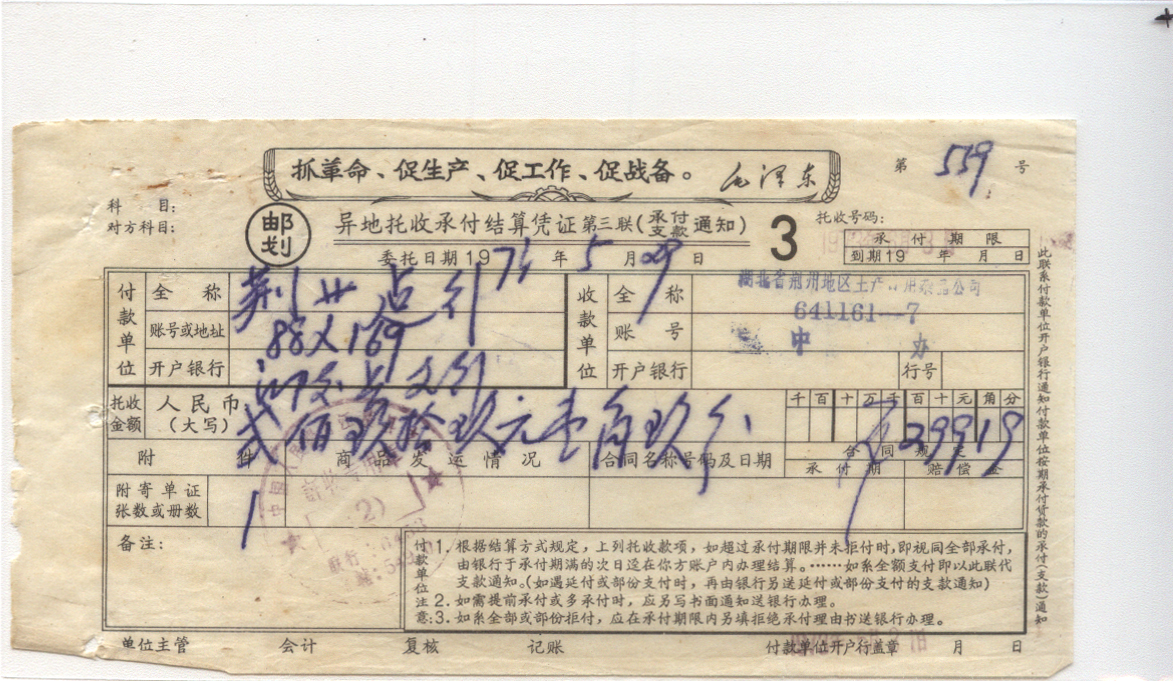 抓革命、促生产、促工作、促战备。 毛泽东
第 559 号
科 目:
对方科目:
邮划
异地托收承付结算凭证 第三联(承付支款通知)
3
托收号码:
承付期限
到期19 年 月 日
委托日期 19 74 年 5 月 29 日
付款单位
全 称
账号或地址 88X169
开户银行
收款单位
全 称 湖北省荆州地区土产公司
账 号 641161—7
开户银行 中 办
行号
托收金额
人民币(大写) 贰佰玖拾玖元壹角玖分
千百十万千百十元角分
¥29919
附 件
商品发运情况
合同名称号码及日期
合同规定
承付期
赔偿金
附寄单证张数或册数 1
备注:
付款单位注意:
1. 根据结算方式规定,上列托收款项,如超过承付期限并未拒付时,即视同全部承付,
由银行于承付期满的次日迳在你方账户内办理结算。……如系全额支付即以此联代
支款通知。(如遇延付或部份支付时,再由银行另送延付或部份支付的支款通知)
2. 如需提前承付或多承付时,应另写书面通知送银行办理。
3. 如系全部或部份拒付,应在承付期限内另填拒绝承付理由书送银行办理。
此联系付款单位开户银行通知付款单位按期承付货款的承付(支款)通知
单位主管 会计 复核 记账 付款单位开户行盖章 月 日